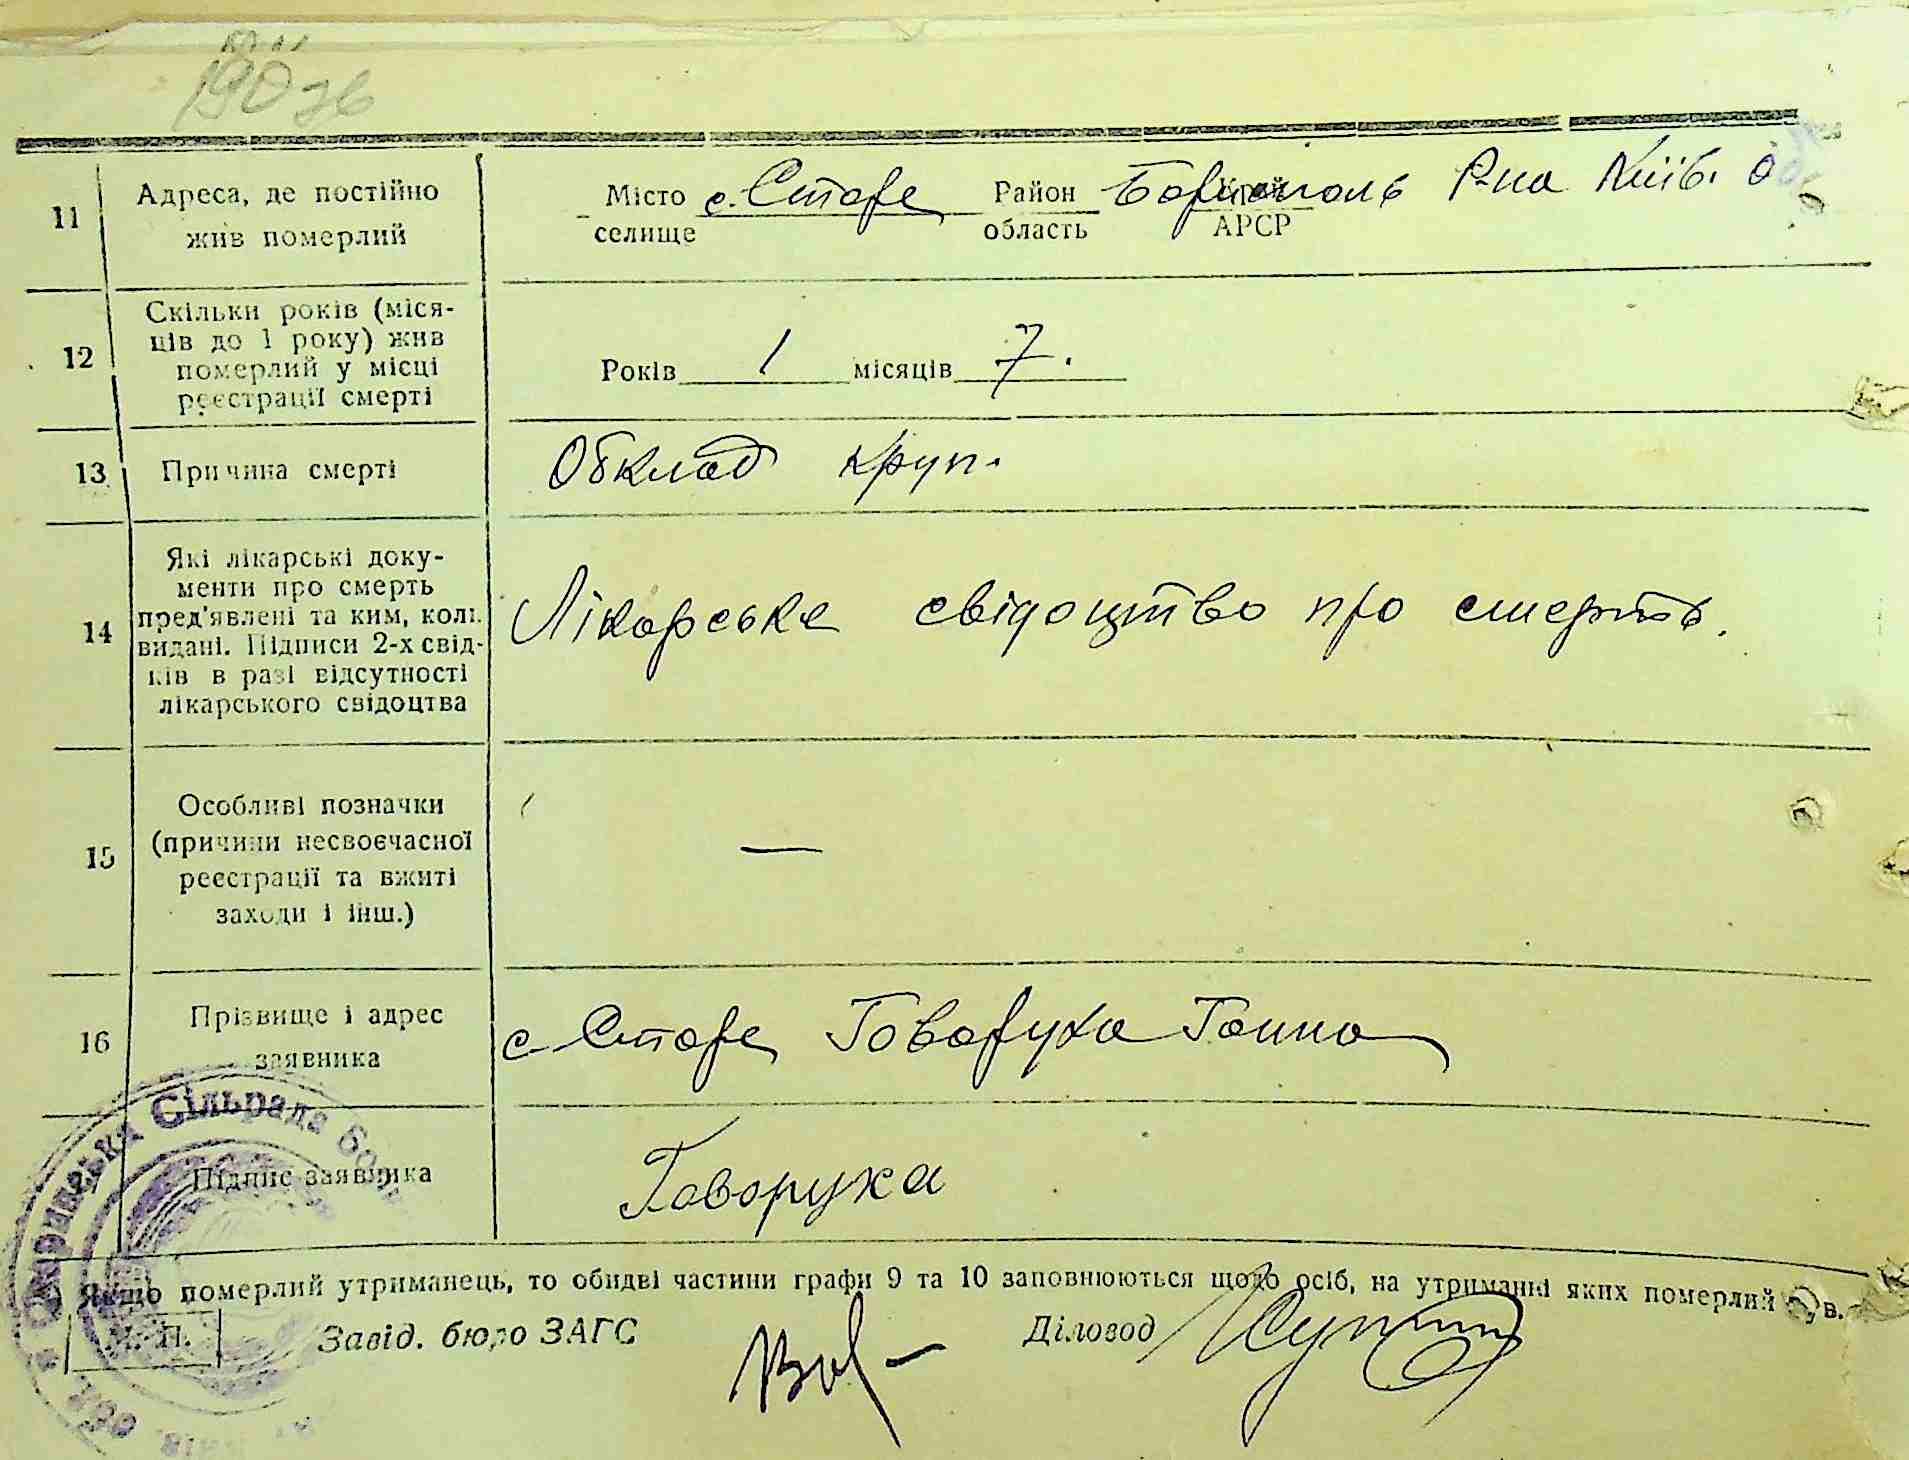 190 зв
11 Адреса, де постійно жив померлий
Місто селище с. Старе Район область Бориспол Р-на Київ. О
Край АРСР
12 Скільки років (місяців до 1 року) жив померлий у місці реєстрації смерті
Років 1 місяців 7.
13 Причина смерті
Обклад круп.
14 Які лікарські документи про смерть пред'явлені та ким, коли видані. Підписи 2-х свідків в разі відсутності лікарського свідоцтва
Лікарське свідоцтво про смерть.
15 Особливі позначки (причини несвоєчасної реєстрації та вжиті заходи і інш.)
—
16 Прізвище і адрес заявника
с. Старе Говоруха Ганна
17 Підпис заявника
Говоруха
Якщо померлий утриманець, то обидві частини графи 9 та 10 заповнюються щодо осіб, на утриманні яких померлий був.
М. П. Завід. бюро ЗАГС
Діловод
Сільрада